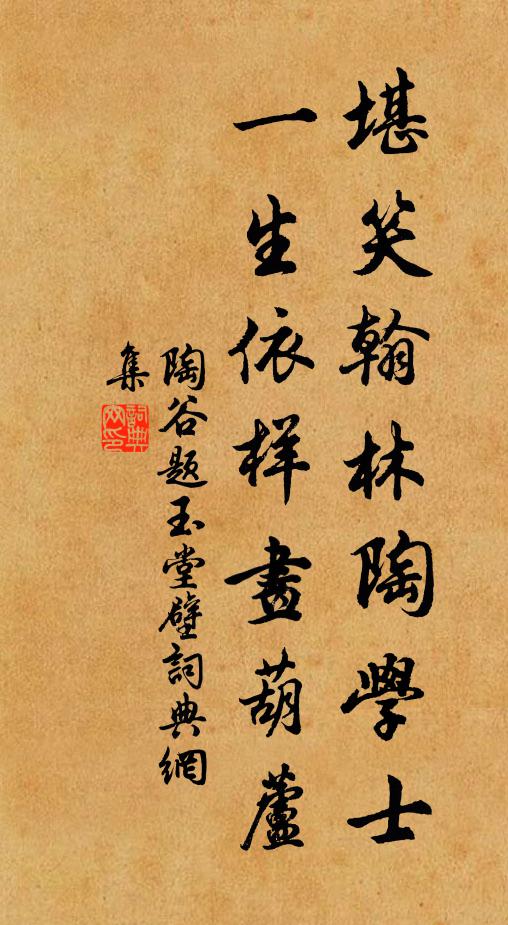 堪笑翰林陶學士
一生依样畫葫蘆
陶谷題玉堂壁詞典網
集
詞典網印